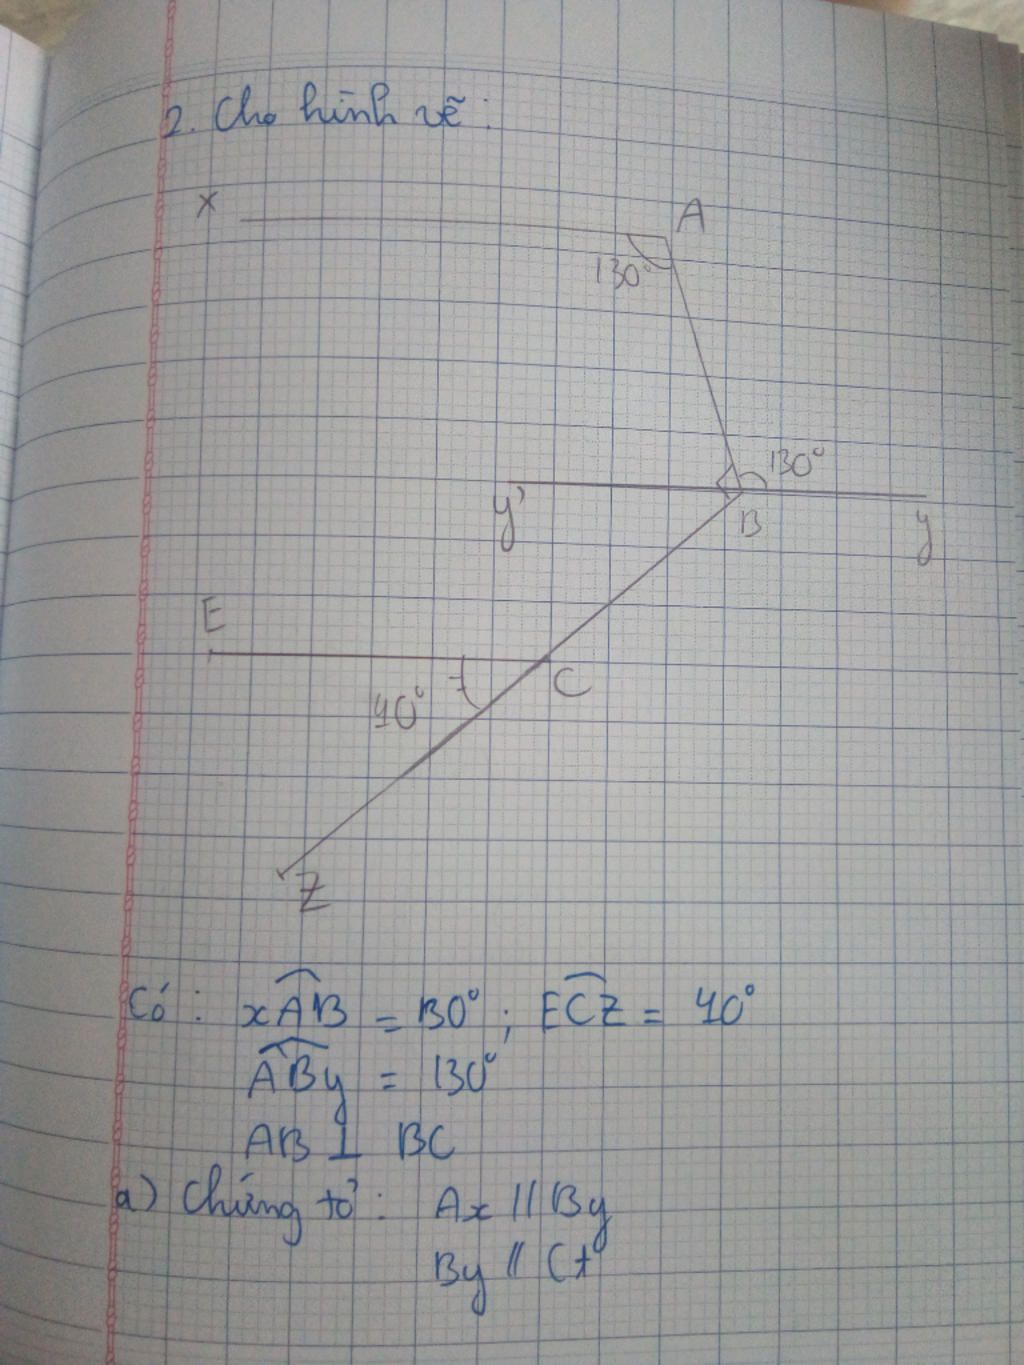 2. Cho hình vẽ:
x
A
130°
130°
y'
B
y
E
C
40°
Z
Có: xAB = 130°; ECZ = 40°
ABy = 130°
AB ⊥ BC
a) Chứng tỏ: Ax // By
By // Ct